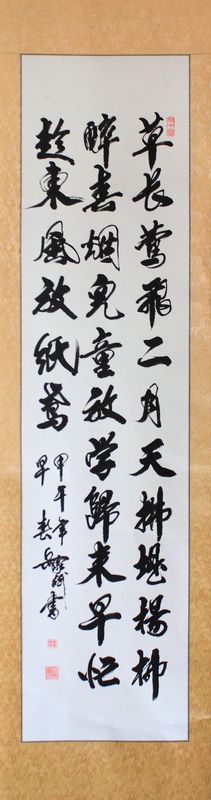 草长莺飛二月天拂堤楊柳
醉春烟兒童放学歸来早忙
趁東風放纸鸢
甲午年
早春
書